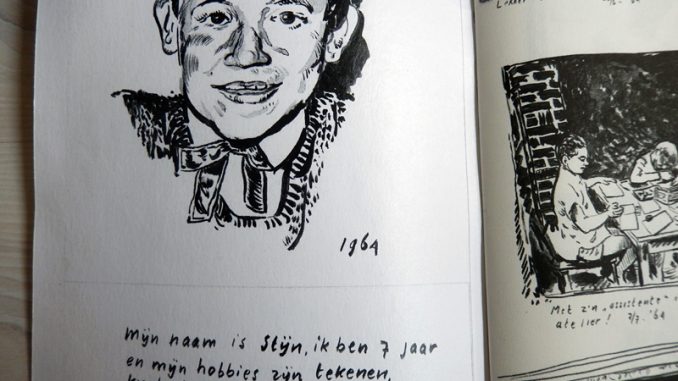 1964
Mijn naam is Stijn, ik ben 7 jaar
en mijn hobbies zijn tekenen,
Met z'n „assistente"
atelier! 7/7 '64